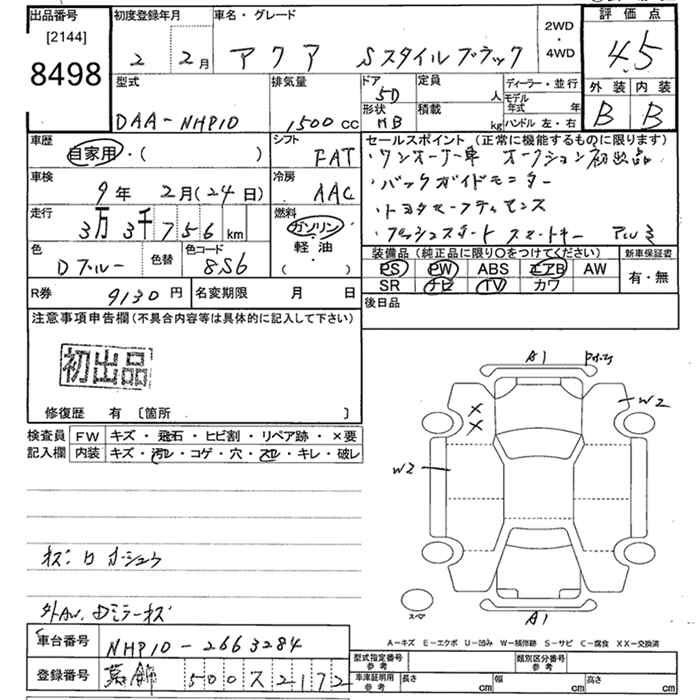 出品番号
[2144]
8498
初度登録年月
2 2月
車名・グレード
アクア Sスタイルブラック
2WD
・
4WD
評価点
4.5
外装 内装
B B
型式
DAA-NHP10
排気量
1500cc
ドア
5D
形状
HB
定員
人
積載
kg
ディーラー・並行
モデル年式 年
ハンドル 左・右
車歴
自家用・( )
シフト
FAT
車検
9年 2月(24日)
冷房
AAC
走行
3万3千756km
燃料
ガソリン
軽油
( )
色
Dブルー
色替
色コード
8S6
R券
9130円
名変期限 月 日
セールスポイント(正常に機能するものに限ります)
・ワンオーナー車 オークション初出品
・バックガイドモニター
・トヨタセーフティセンス
・プッシュスタート スマートキー
装備品(純正品に限り○をつけてください)
PS PW ABS エアB AW
SR ナビ TV カワ
新車保証書
有・無
後日品
注意事項申告欄(不具合内容等は具体的に記入して下さい)
初出品
修復歴 有 〔箇所 〕
検査員記入欄
FW キズ・飛石・ヒビ割・リペア跡・×要
内装 キズ・汚レ・コゲ・穴・スレ・キレ・破レ
A1
W2
X
X
W2
スペア
A1
A=キズ E=エクボ U=凹み W=補修跡 S=サビ C=腐食 XX=交換済
車台番号
NHP10-2663284
登録番号
葛飾 500ス2172
型式指定番号 参考
類別区分番号 参考
車庫証明用 参考
長さ cm
幅 cm
高さ cm